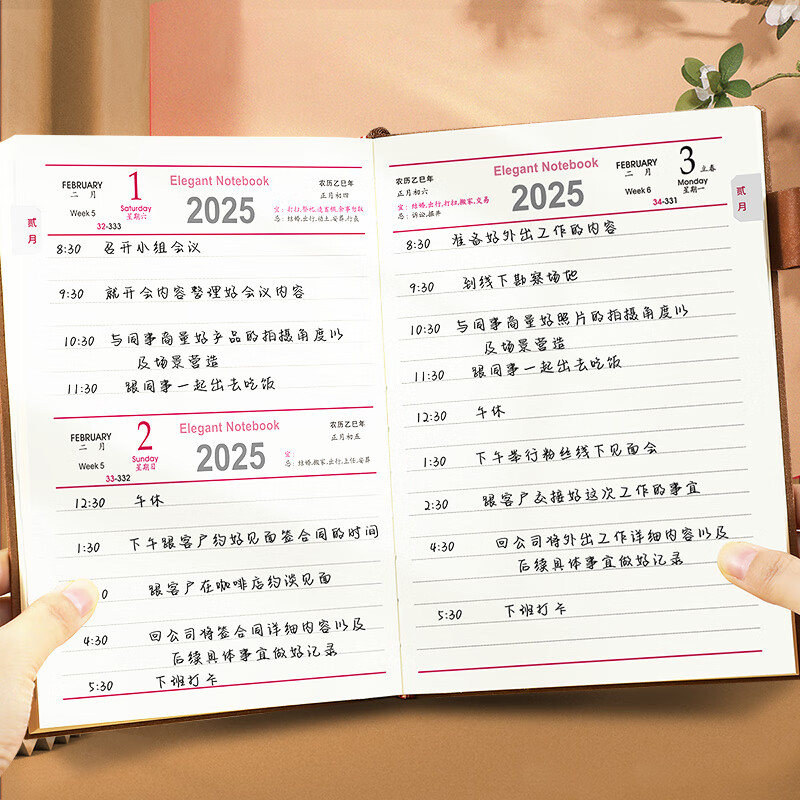 FEBRUARY
二 月
1
Elegant Notebook
农历乙巳年
正月初四
Week 5
Saturday
星期六
2025
32-333
忌：结婚,出行,动土,安葬,行丧
贰月
8:30 召开小组会议
9:30 就开会内容整理好会议内容
10:30 与同事商量好产品的拍摄角度以
及场景营造
11:30 跟同事一起出去吃饭
FEBRUARY
二 月
2
Elegant Notebook
农历乙巳年
正月初五
Week 5
Sunday
星期日
2025
宜：
忌：结婚,搬家,出行,上任,安葬
33-332
12:30 午休
1:30 下午跟客户约好见面签合同的时间
0 跟客户在咖啡店约谈见面
4:30 回公司将签合同详细内容以及
后续具体事宜做好记录
5:30 下班打卡
农历乙巳年
正月初六
Elegant Notebook
FEBRUARY
二 月
3
立春
宜：结婚,出行,打扫,搬家,交易
忌：诉讼,掘井
2025
Week 6
Monday
星期一
34-331
贰月
8:30 准备好外出工作的内容
9:30 到线下勘察场地
10:30 与同事商量好照片的拍摄角度以
及场景营造
11:30 跟同事一起出去吃饭
12:30 午休
1:30 下午举行粉丝线下见面会
2:30 跟客户交接好这次工作的事宜
4:30 回公司将外出工作详细内容以及
后续具体事宜做好记录
5:30 下班打卡